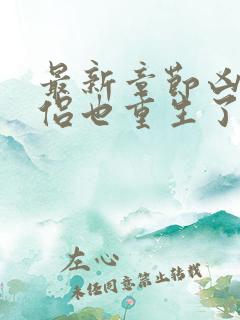 最新章节凶
侣也重生了
左心
未经同意禁止转载